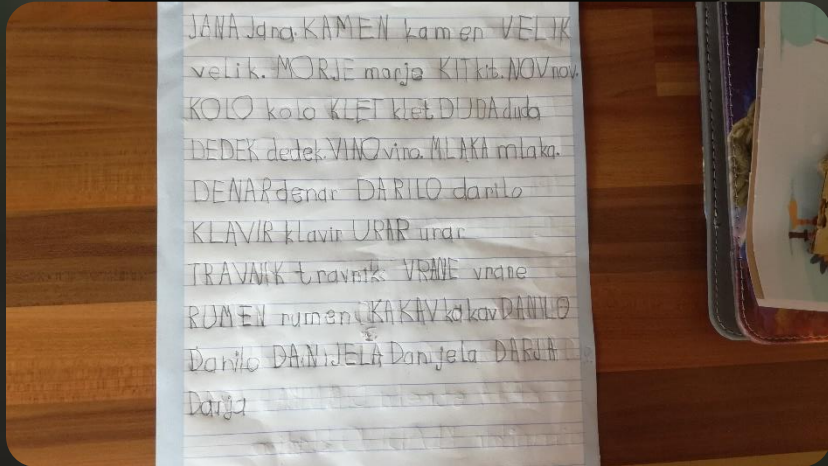 JANA Jana. KAMEN kamen VELIK
velik. MORJE morje KIT kit. NOV nov.
KOLO kolo KLET klet DUDA duda
DEDEK dedek. VINO vino. MLAKA mlaka.
DENAR denar DARILO darilo
KLAVIR klavir URAR urar
TRAVNIK travnik VRANE vrane
RUMEN rumen KAKAV kakav DANILO
Danilo DANIJELA Danijela DARJA
Darja